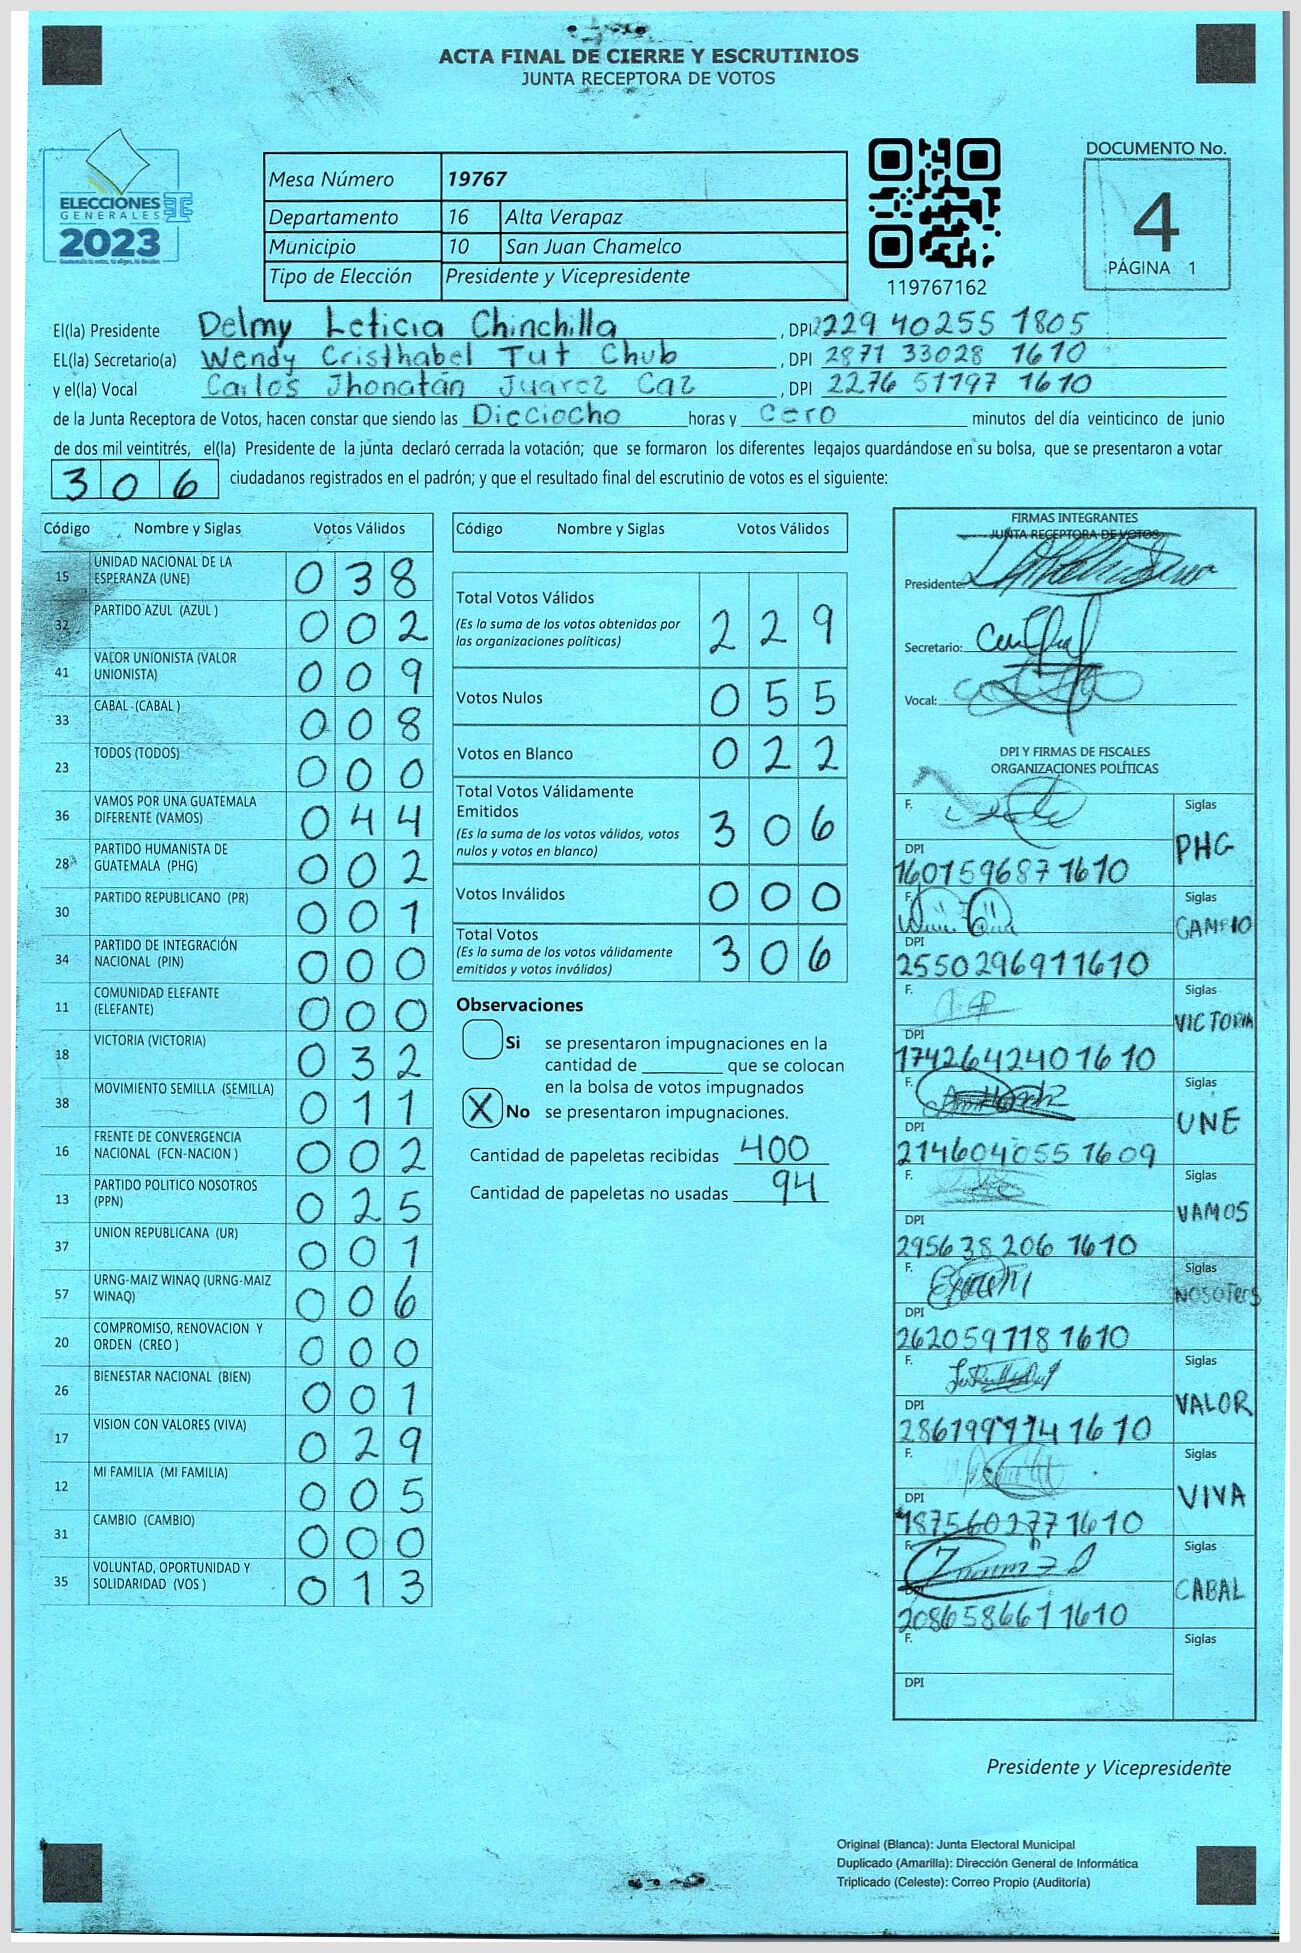 ACTA FINAL DE CIERRE Y ESCRUTINIOS
JUNTA RECEPTORA DE VOTOS
ELECCIONES
GENERALES
2023
Mesa Número 19767
Departamento 16 Alta Verapaz
Municipio 10 San Juan Chamelco
Tipo de Elección Presidente y Vicepresidente
119767162
DOCUMENTO No.
4
PÁGINA 1
El(la) Presidente Delmy Leticia Chinchilla , DPI 2229 40255 1805
EL(la) Secretario(a) Wendy Cristhabel Tut Chub , DPI 2871 33028 1610
y el(la) Vocal Carlos Jhonatán Juarez Caz , DPI 2276 51797 1610
de la Junta Receptora de Votos, hacen constar que siendo las Dieciocho horas y cero minutos del día veinticinco de junio
de dos mil veintitrés, el(la) Presidente de la junta declaró cerrada la votación; que se formaron los diferentes legajos guardándose en su bolsa, que se presentaron a votar
306 ciudadanos registrados en el padrón; y que el resultado final del escrutinio de votos es el siguiente:
Código Nombre y Siglas Votos Válidos
15 UNIDAD NACIONAL DE LA ESPERANZA (UNE) 038
32 PARTIDO AZUL (AZUL ) 002
41 VALOR UNIONISTA (VALOR UNIONISTA) 009
33 CABAL (CABAL ) 008
23 TODOS (TODOS) 000
36 VAMOS POR UNA GUATEMALA DIFERENTE (VAMOS) 044
28 PARTIDO HUMANISTA DE GUATEMALA (PHG) 002
30 PARTIDO REPUBLICANO (PR) 001
34 PARTIDO DE INTEGRACIÓN NACIONAL (PIN) 000
11 COMUNIDAD ELEFANTE (ELEFANTE) 000
18 VICTORIA (VICTORIA) 032
38 MOVIMIENTO SEMILLA (SEMILLA) 011
16 FRENTE DE CONVERGENCIA NACIONAL (FCN-NACION ) 002
13 PARTIDO POLITICO NOSOTROS (PPN) 025
37 UNION REPUBLICANA (UR) 001
57 URNG-MAIZ WINAQ (URNG-MAIZ WINAQ) 006
20 COMPROMISO, RENOVACION Y ORDEN (CREO ) 000
26 BIENESTAR NACIONAL (BIEN) 001
17 VISION CON VALORES (VIVA) 029
12 MI FAMILIA (MI FAMILIA) 005
31 CAMBIO (CAMBIO) 000
35 VOLUNTAD, OPORTUNIDAD Y SOLIDARIDAD (VOS ) 013
Código Nombre y Siglas Votos Válidos
Total Votos Válidos 229
(Es la suma de los votos obtenidos por
las organizaciones políticas)
Votos Nulos 055
Votos en Blanco 022
Total Votos Válidamente
Emitidos 306
(Es la suma de los votos válidos, votos
nulos y votos en blanco)
Votos Inválidos 000
Total Votos 306
(Es la suma de los votos válidamente
emitidos y votos inválidos)
Observaciones
Si se presentaron impugnaciones en la
cantidad de ________ que se colocan
en la bolsa de votos impugnados
X No se presentaron impugnaciones.
Cantidad de papeletas recibidas 400
Cantidad de papeletas no usadas 94
FIRMAS INTEGRANTES
JUNTA RECEPTORA DE VOTOS
Presidente:
Secretario:
Vocal:
DPI Y FIRMAS DE FISCALES
ORGANIZACIONES POLÍTICAS
F. Siglas PHG
DPI 160159687 1610
F. Siglas CAMBIO
DPI 2550296911610
F. Siglas VICTORIA
DPI 1742642401610
F. Siglas UNE
DPI 214604055 1609
F. Siglas VAMOS
DPI 295638206 1610
F. Siglas
DPI 262059718 1610
F. Siglas VALOR
DPI 1610
F. Siglas VIVA
DPI 1875602771610
F. Siglas CABAL
DPI 2086586611610
F. Siglas
DPI
Presidente y Vicepresidente
Original (Blanca): Junta Electoral Municipal
Duplicado (Amarilla): Dirección General de Informática
Triplicado (Celeste): Correo Propio (Auditoría)